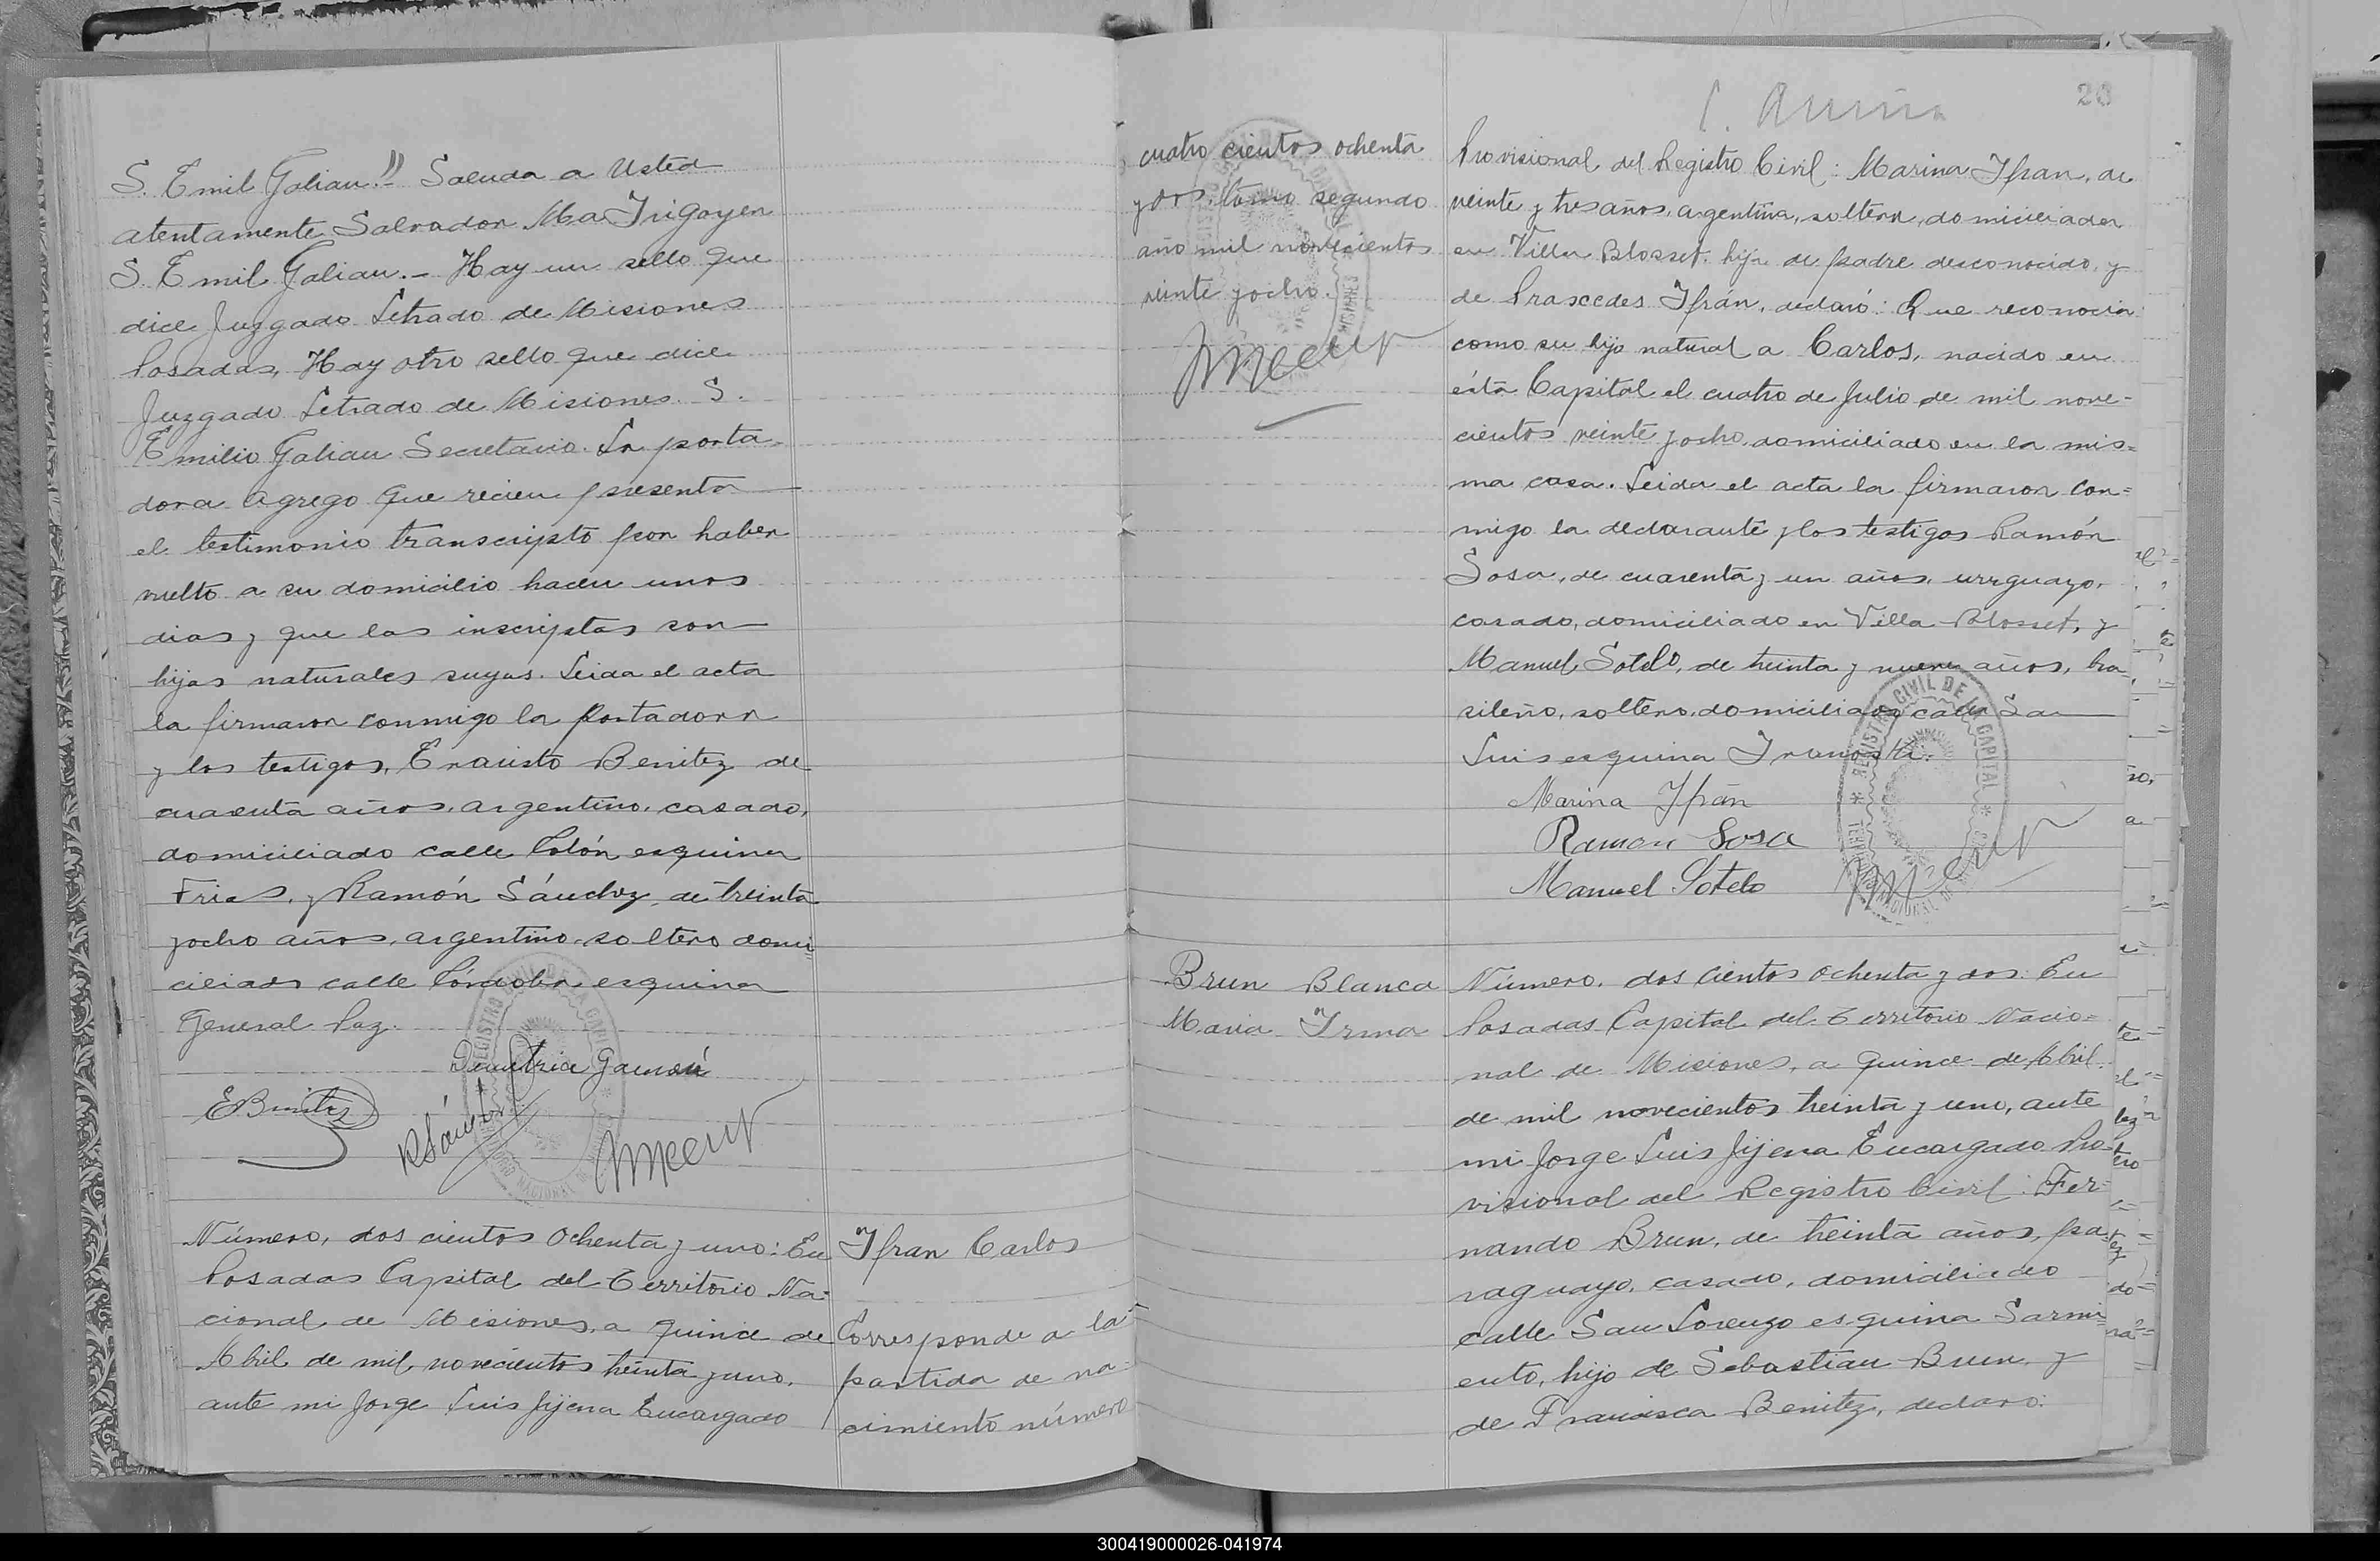 S. Emil Galian." Saluda a Usted
atentamente Salvador Ma Irigoyen
S. Emil Galian.- Hay un sello que
dice Juzgado Letrado de Misiones
Posadas, Hay otro sello que dice
Juzgado Letrado de Misiones. S.
Emilio Galian Secretario. La porta-
dora agrego que recien presenta
el testimonio transcripto por haber
vuelto a su domicilio hacen unos
dias y que las inscriptas son
hijas naturales suyas. Leida el acta
la firmaron conmigo la portadora
y los testigos, Evaristo Benitez de
cuarenta años, argentino, casado,
domiciliado calle Colón esquina
Frias, y Ramón Sánchez, de treinta
y ocho años, argentino, soltero domi=
ciliado calle Córdoba esquina
General Paz.
EBenitez
RSánchez
Número, dos cientos ochenta y uno: En
Posadas Capital del Territorio Na=
cional de Misiones, a quince de
Abril de mil novecientos treinta y uno,
ante mi Jorge Luis Jijena Encargado
Ifran Carlos
Corresponde a la
partida de na-
cimiento número
cuatro cientos ochenta
y dos, tomo segundo
año mil novecientos
veinte y ocho.
Provisional del Registro Civil: Marina Ifran, de
veinte y tres años, argentina, soltera, domiciliada
en Villa Blosset, hija de padre desconocido y
de Praxcedes Ifrán, declaró: Que reconocia
como su hijo natural a Carlos, nacido en
ésta Capital el cuatro de Julio de mil nove-
cientos veinte y ocho, domiciliado en la mis=
ma casa. Leida el acta la firmaron con=
migo la declarante y los testigos Ramón
Sosa, de cuarenta y un años, uruguayo,
casado, domiciliado en Villa Blosset, y
Manuel Sotelo, de treinta y nueve años, bra-
sileño, soltero, domiciliado calle San
Luis esquina
Marina Ifrán
Ramon Sosa
Manuel Sotelo
Brun Blanca
Maria Irma
Número, dos cientos ochenta y dos: En
Posadas Capital del Territorio Nacio=
nal de Misiones, a quince de Abril
de mil novecientos treinta y uno, ante
mi Jorge Luis Jijena Encargado Pro-
visional del Registro Civil: Fer-
nando Brun, de treinta años, pa-
raguayo, casado, domiciliado
calle San Lorenzo esquina Sarmi=
ento, hijo de Sebastian Brun y
de Francisca Benitez, declaro:
300419000026-041974